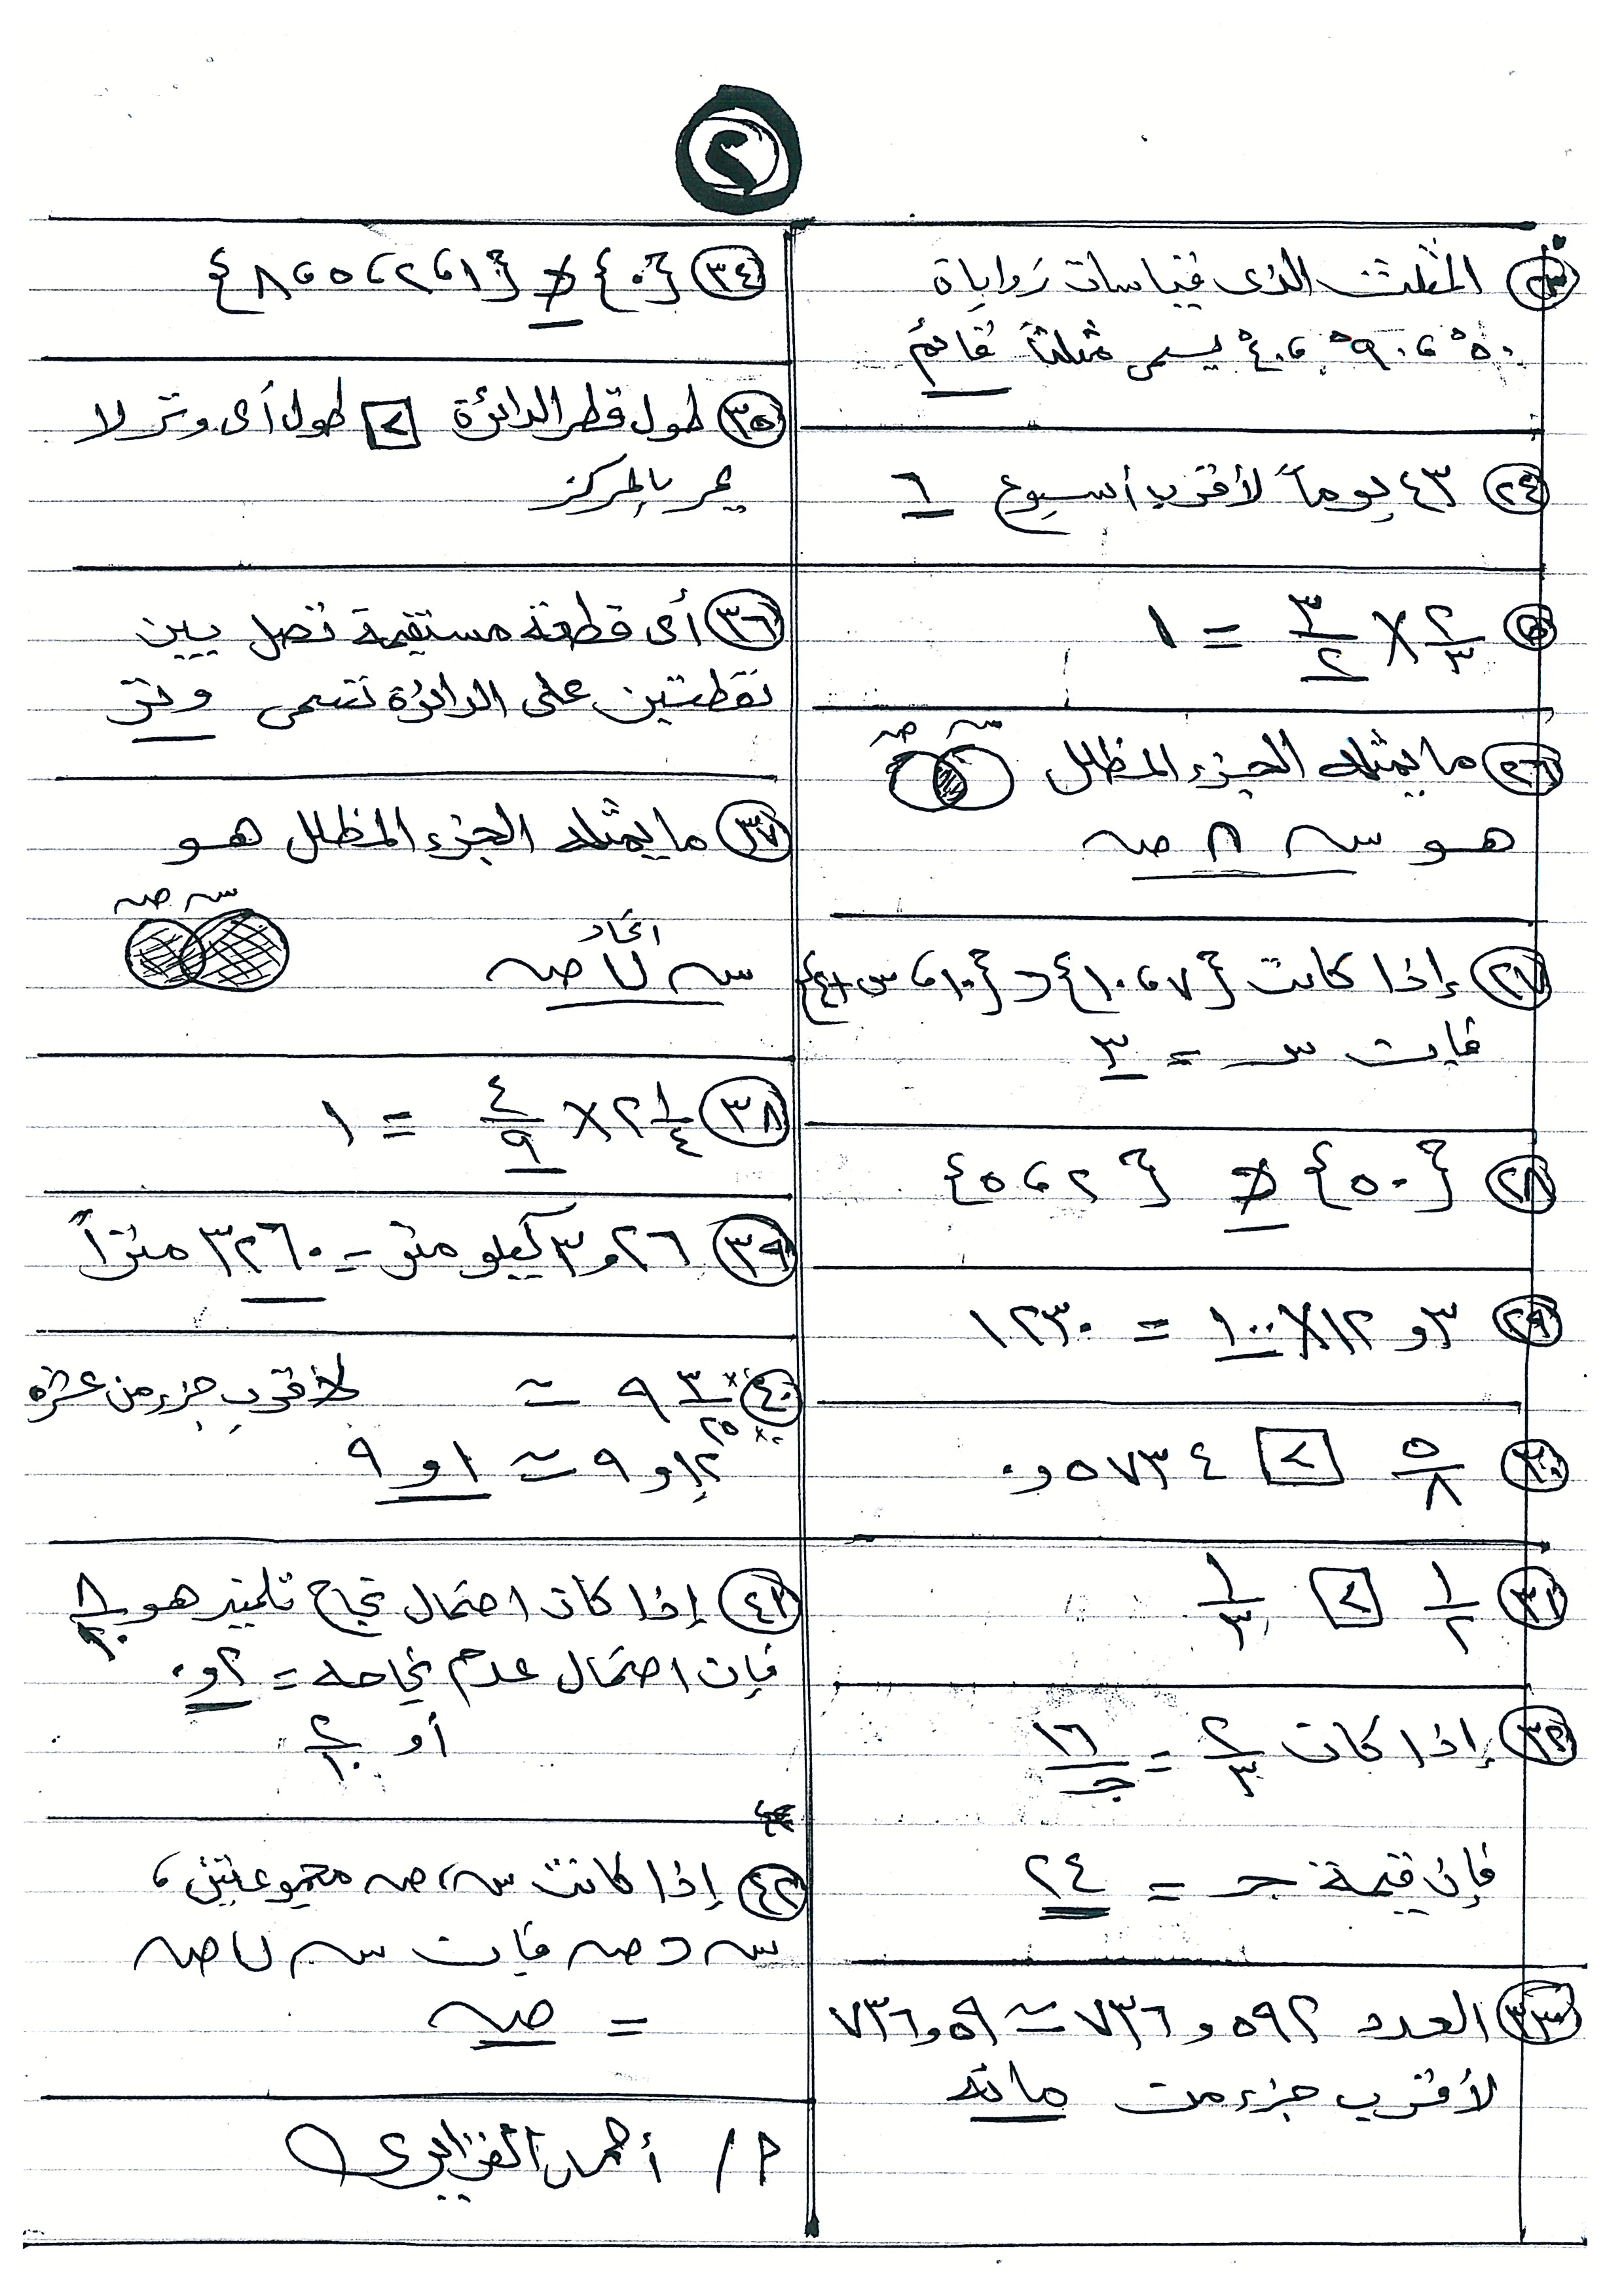 ٢
٢٣ المثلث الذى قياسات زواياة
٥٠° ، ٩٠° ، ٤٠° يسمى مثلثاً قائم
٢٤ ٤٣ يوماً لأقرب أسبوع ٦
٢٥ ٢/٣ × ٣/٢ = ١
٢٦ ما يمثله الجزء المظلل
سـ صـ
هو سـ ∩ صـ
٢٧ إذا كانت {٧ ، ١٠} ⊂ {١٠ ، س + ٤}
فإن س = ٣
٢٨ {٥٠} ⊄ {٢ ، ٥}
٢٩ ٣و١٢ × ١٠٠ = ١٢٣٠
٣٠ ٥/٨ > ٥٧٣٤و٠
٣١ ١/٢ > ١/٣
٣٢ إذا كان ٢/٣ = ١٦/جـ
فإن قيمة جـ = ٢٤
٣٣ العدد ٥٩٢و٧٣٦ ≃ ٥٩و٧٣٦
لأقرب جزء من مائه
٣٤ {٠} ⊄ {١ ، ٢ ، ٥ ، ٨}
٣٥ طول قطر الدائرة > طول أى وتر لا
يمر بالمركز
٣٦ أى قطعة مستقيمة تصل بين
نقطتين على الدائرة تسمى وتر
٣٧ ما يمثله الجزء المظلل هو
سـ صـ
اتحاد
سـ ∪ صـ
٣٨ ٢ ١/٤ × ٤/٩ = ١
٣٩ ٢٦و٣ كيلو متر = ٣٢٦٠ متراً
٤٠ ٩ ٣/٢٥ ≃ لأقرب جزء من عشره
١٢و٩ ≃ ١و٩
٤١ إذا كان احتمال نجاح تلميذ هو ٨/١٠
فإن احتمال عدم نجاحه = ٢و٠
أو ٢/١٠
٤٢ إذا كانت سـ، صـ مجموعتين ،
سـ ⊂ صـ فإن سـ ∪ صـ
= صـ
أ / أحمد